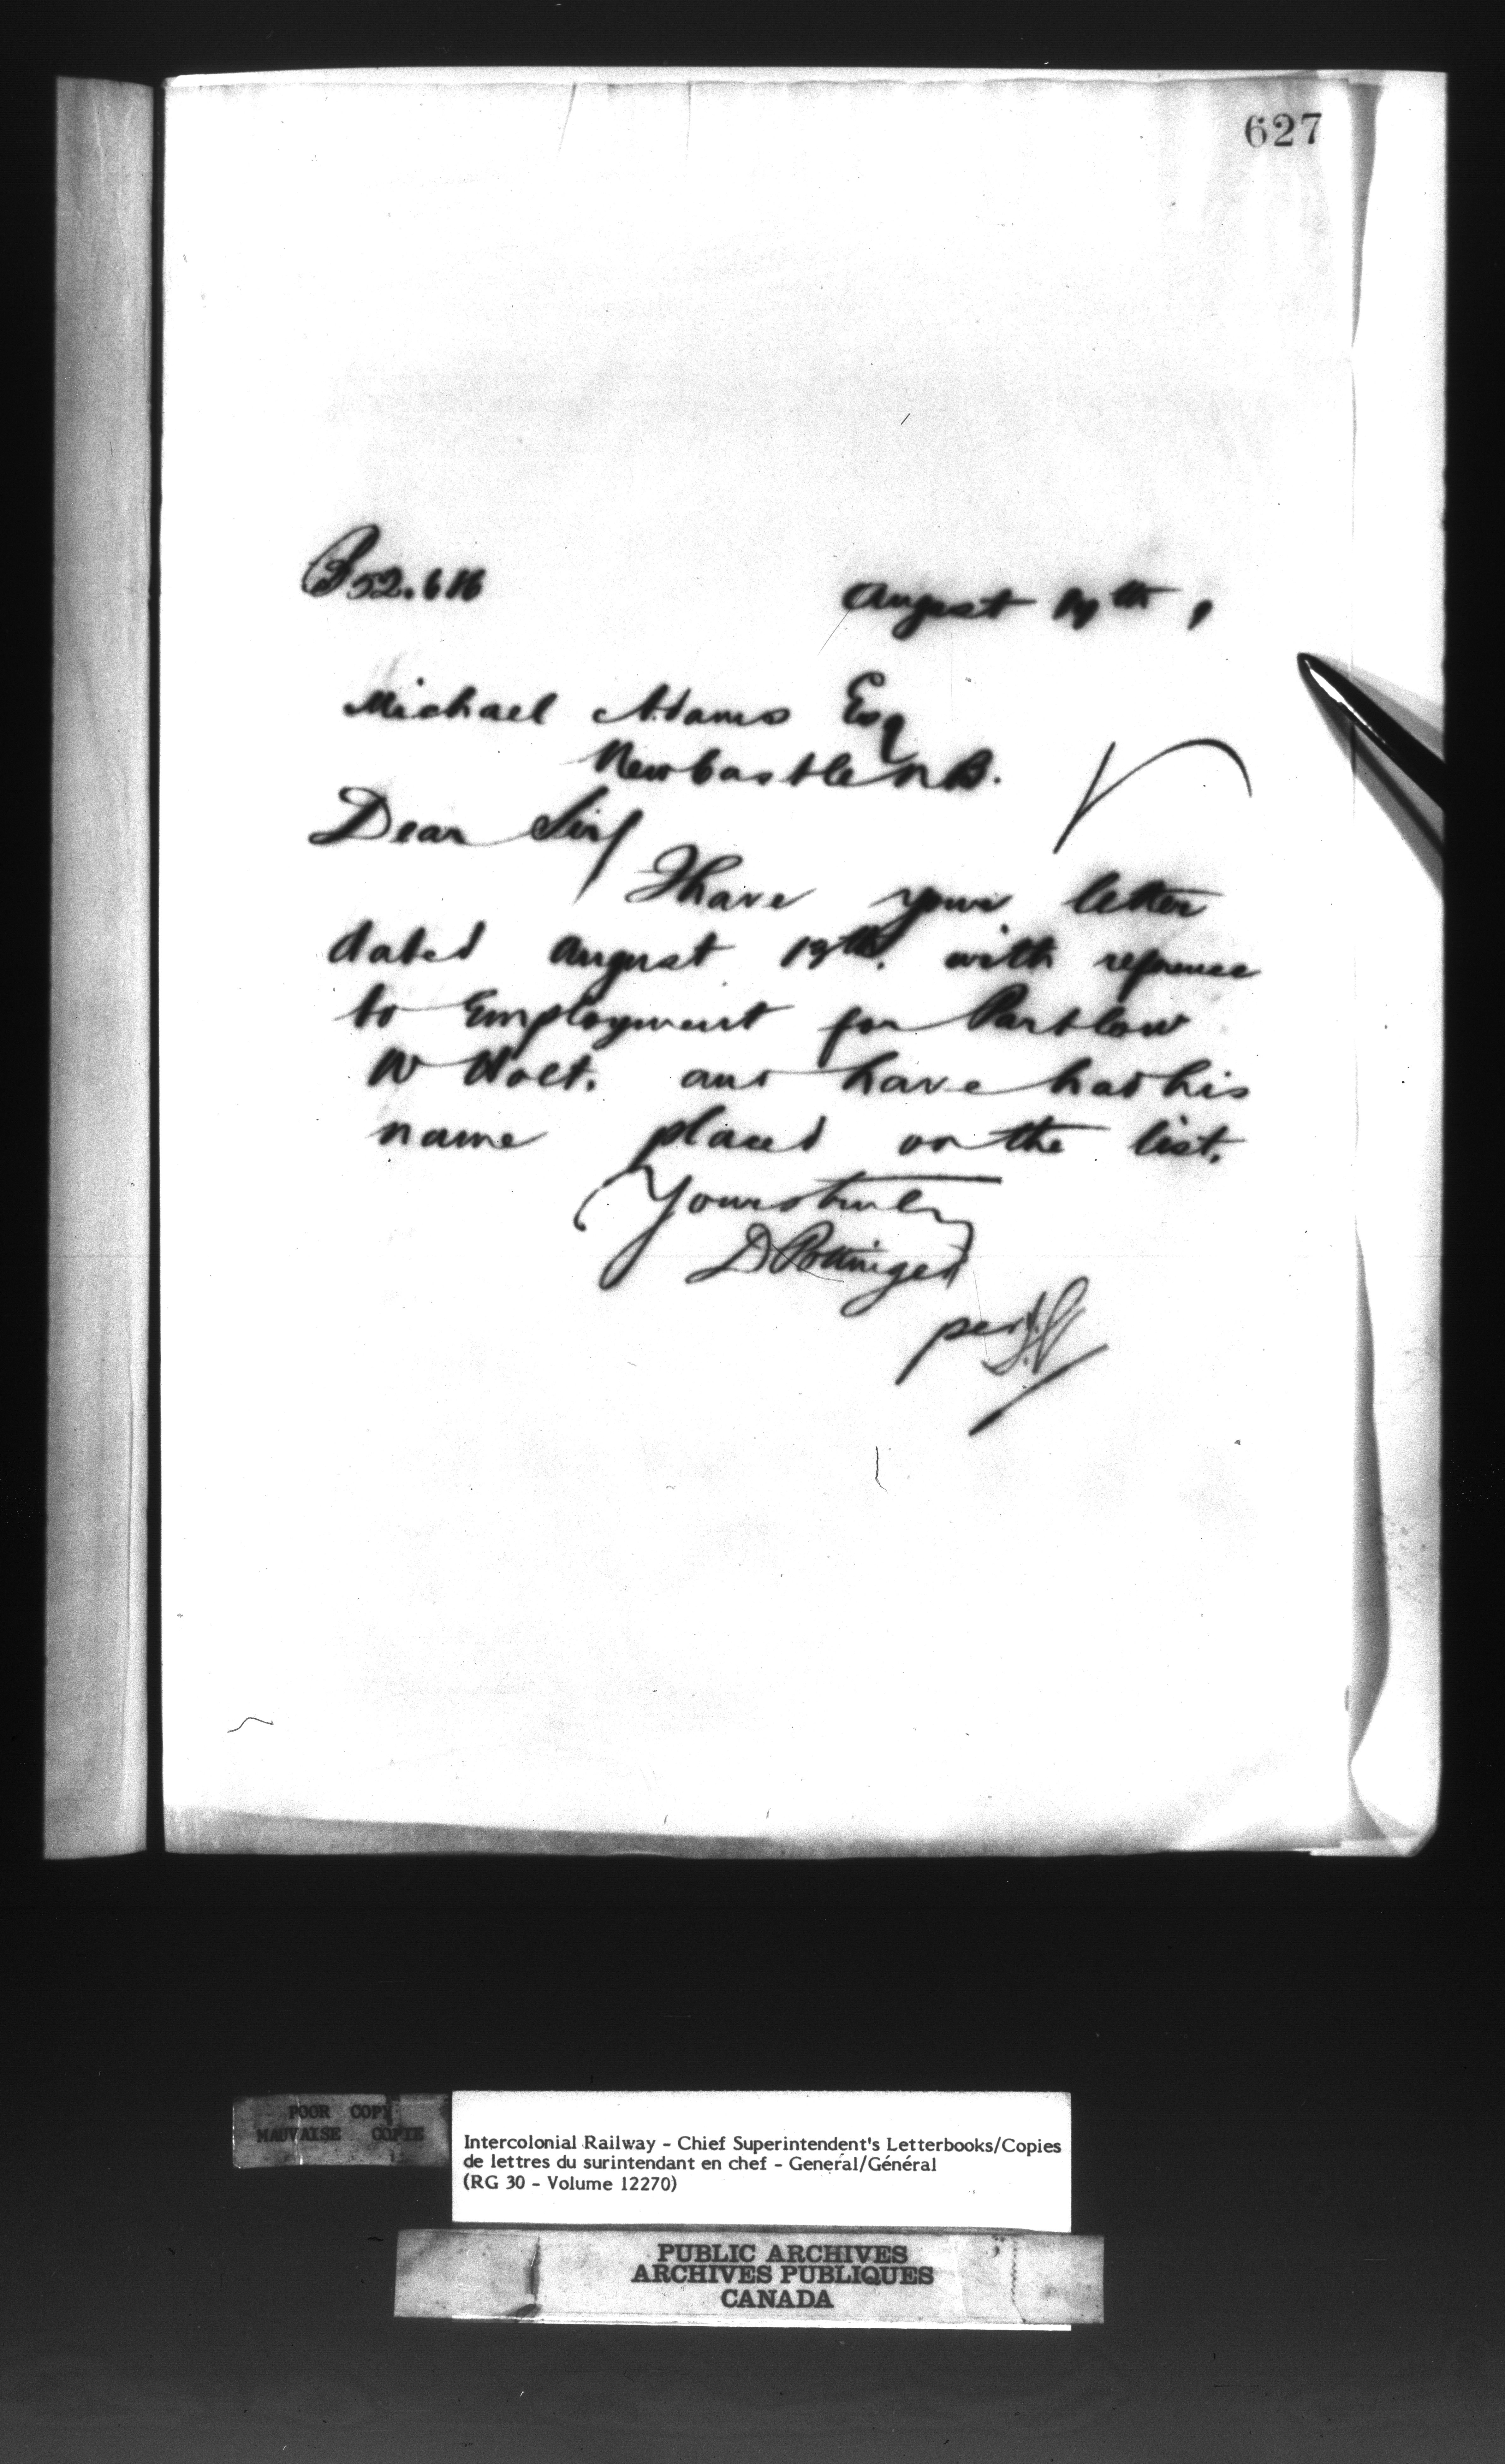 627
August 19th,
Michael Adams Esq
Newcastle N B.
Dear Sir/
I have your letter
dated August 19th. with refrence
to Employment for Partlow
W Holt. and have had his
name placed on the list.
Yours truly
D Pottinger
per
POOR COPY
MAUVAISE COPIE
Intercolonial Railway - Chief Superintendent's Letterbooks/Copies
de lettres du surintendant en chef - General/Général
(RG 30 - Volume 12270)
PUBLIC ARCHIVES
ARCHIVES PUBLIQUES
CANADA